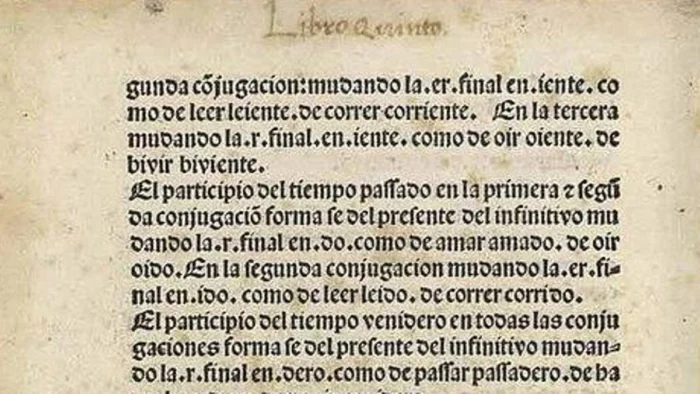 Libro Quinto.
gunda cõjugacion:mudando la.er.final en.iente. co
mo de leer leiente.de correr corriente. En la tercera
mudando la.r.final.en.iente. como de oir oiente. de
bivir biviente.
El participio del tiempo paſſado en la primera ⁊ ſegũ
da conjugaciõ forma ſe del preſente del infinitivo mu
dando la.r.final en.do.como de amar amado. de oir
oido.En la ſegunda conjugacion mudando la.er.fi-
nal en.ido. como de leer leido. de correr corrido.
El participio del tiempo venidero en todas las conju
gaciones forma ſe del preſente del infinitivo mudan-
do la.r.final en.dero.como de paſſar paſſadero.de ha